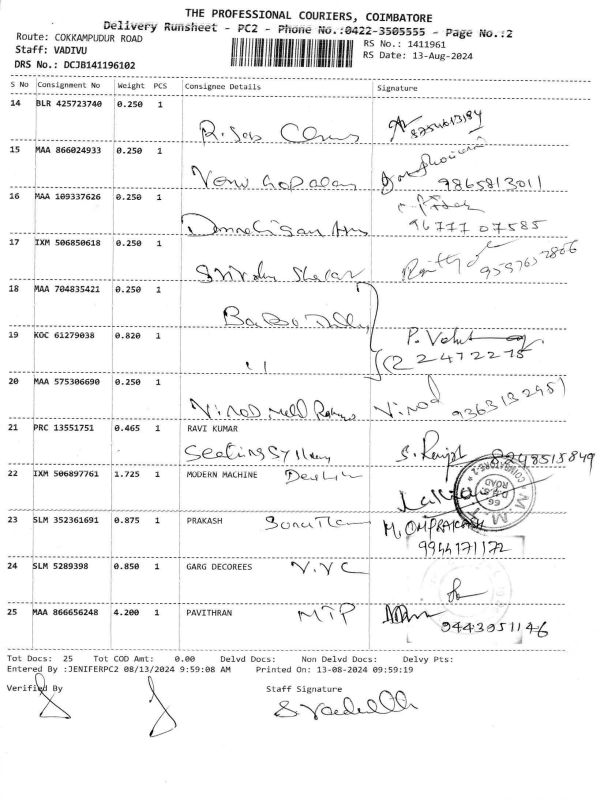 THE PROFESSIONAL COURIERS, COIMBATORE
Delivery Runsheet - PC2 - Phone No.:0422-3505555 - Page No.:2
Route: COKKAMPUDUR ROAD
RS No.: 1411961
Staff: VADIVU
RS Date: 13-Aug-2024
DRS No.: DCJB141196102
S No Consignment No Weight PCS Consignee Details Signature
14 BLR 425723740 0.250 1
8754613184
15 MAA 866024933 0.250 1
Venu Gopalan
9865813011
16 MAA 109337626 0.250 1
96777 07585
17 IXM 506850618 0.250 1
18 MAA 704835421 0.250 1
19 KOC 61279038 0.820 1
2472275
20 MAA 575306690 0.250 1
Vinod
21 PRC 13551751 0.465 1 RAVI KUMAR
8248515849
22 IXM 506897761 1.725 1 MODERN MACHINE
23 SLM 352361691 0.875 1 PRAKASH M. OMPRAKASH
9944171172
24 SLM 5289398 0.850 1 GARG DECOREES V.V.C
25 MAA 866656248 4.200 1 PAVITHRAN MTP
9443951146
Tot Docs: 25 Tot COD Amt: 0.00 Delvd Docs: Non Delvd Docs: Delvy Pts:
Entered By :JENIFERPC2 08/13/2024 9:59:08 AM Printed On: 13-08-2024 09:59:19
Verified By Staff Signature